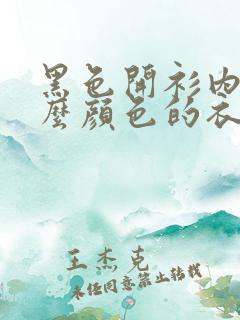 黑色開衫內
麼顏色的衣
王杰克
未任同意禁止转载